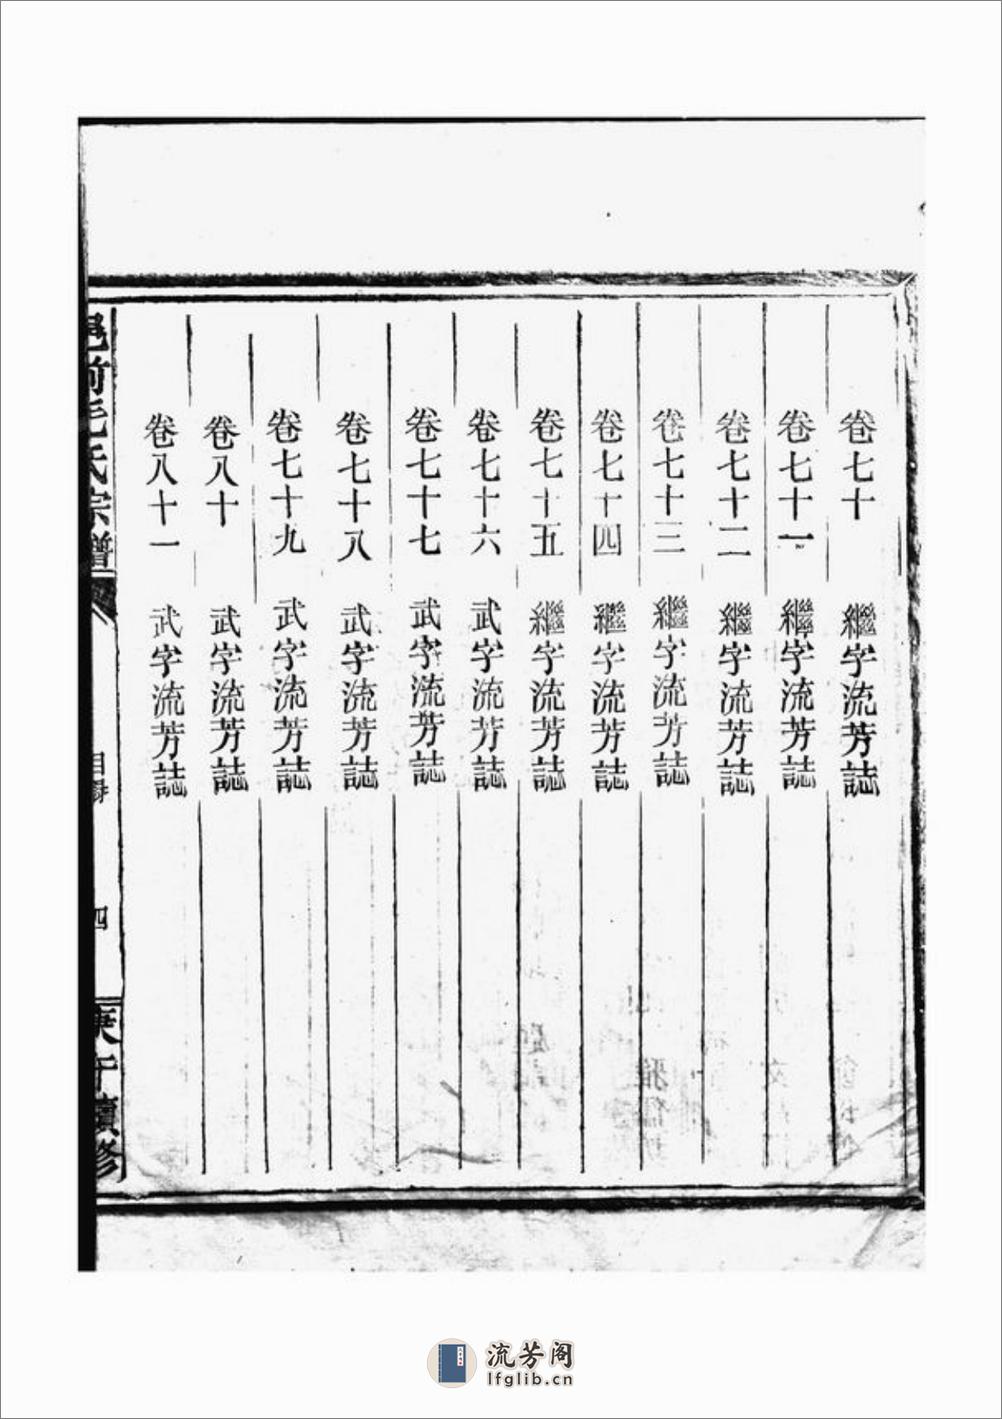 卷七十 繼字流芳誌
卷七十一 繼字流芳誌
卷七十二 繼字流芳誌
卷七十三 繼字流芳誌
卷七十四 繼字流芳誌
卷七十五 繼字流芳誌
卷七十六 武字流芳誌
卷七十七 武字流芳誌
卷七十八 武字流芳誌
卷七十九 武字流芳誌
卷八十 武字流芳誌
卷八十一 武字流芳誌
邑前毛氏宗譜
目錄
四
庚午續修
流芳阁
lfglib.cn